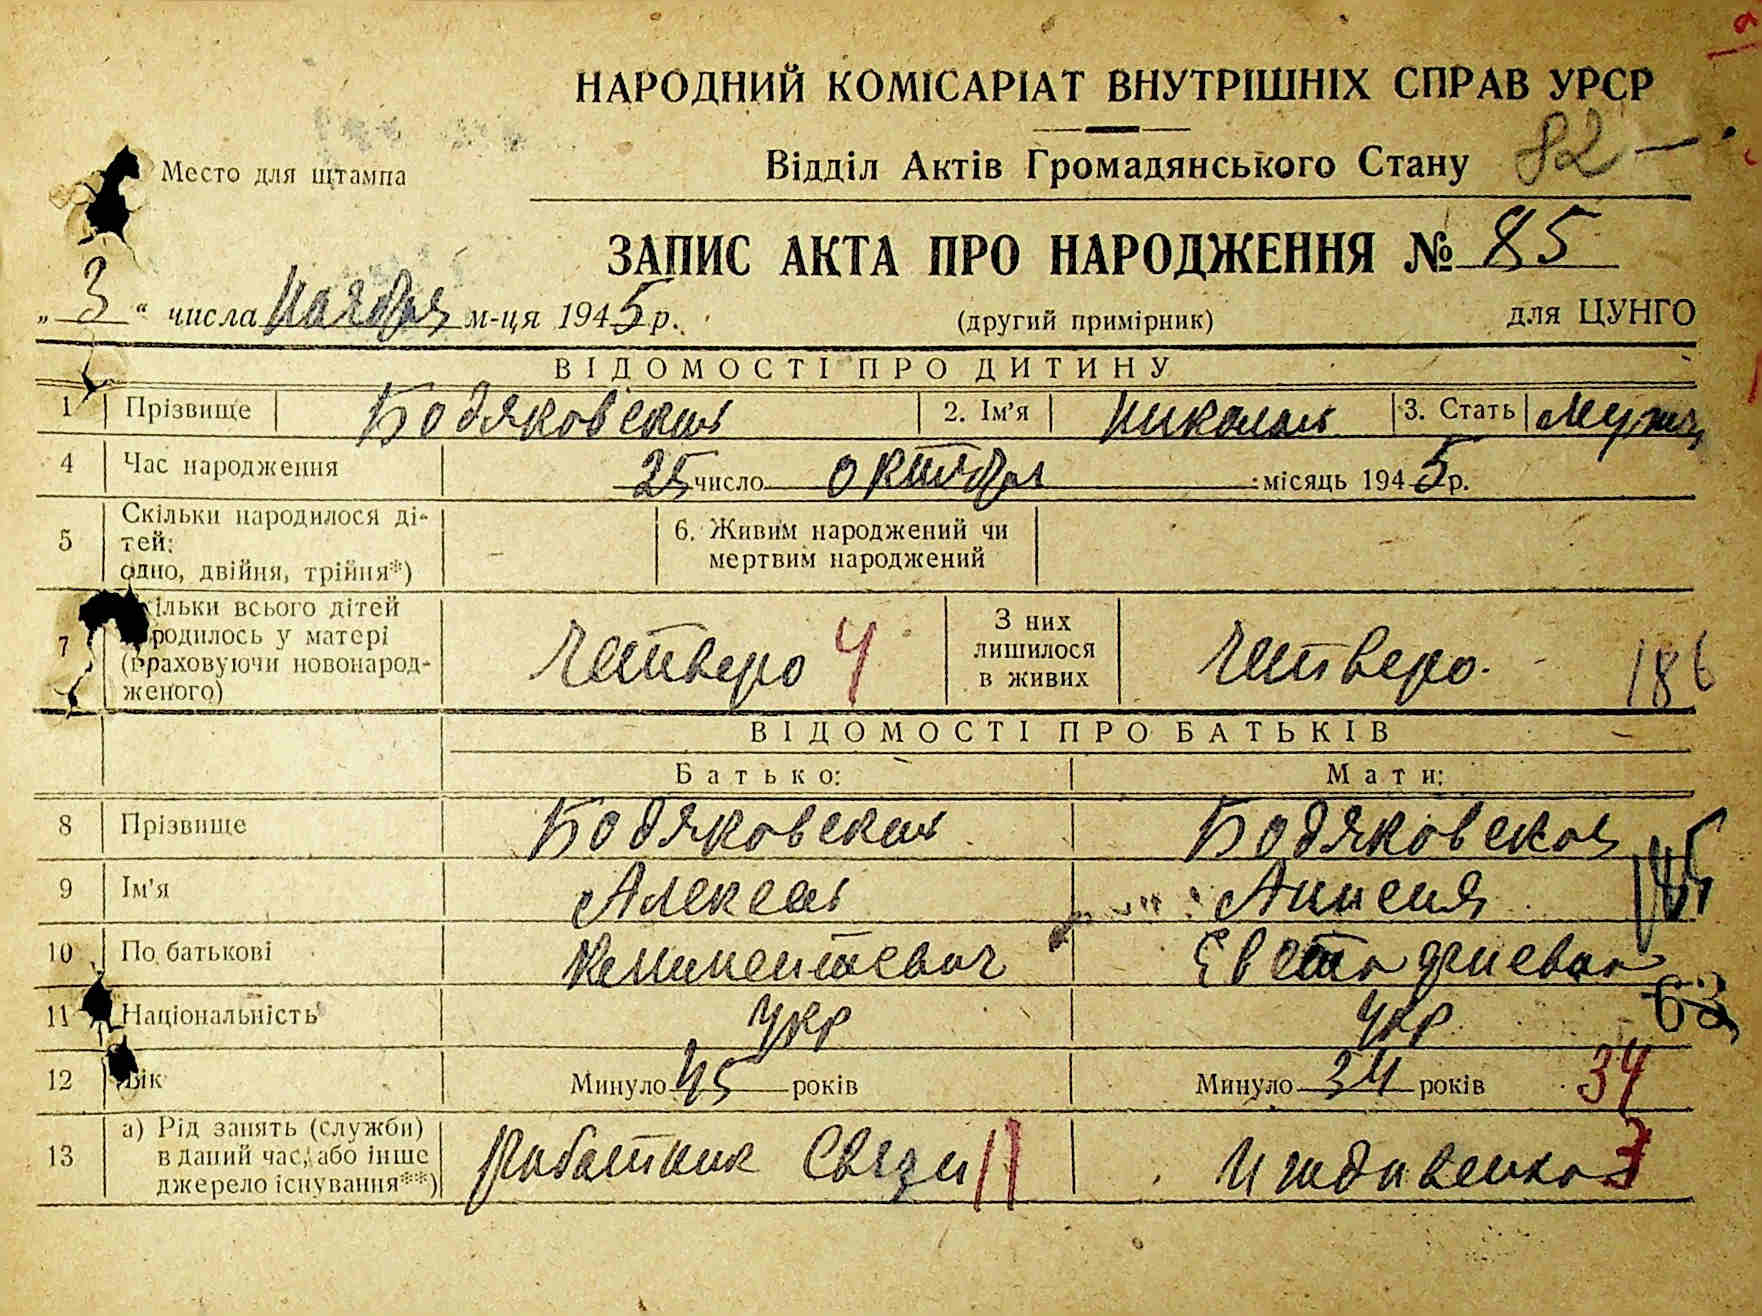 НАРОДНИЙ КОМІСАРІАТ ВНУТРІШНІХ СПРАВ УРСР
Відділ Актів Громадянського Стану 82 —
Место для штампа
ЗАПИС АКТА ПРО НАРОДЖЕННЯ № 85
„ 3 “ числа ноября м-ця 1945 р. (другий примірник) для ЦУНГО
ВІДОМОСТІ ПРО ДИТИНУ
1 Прізвище Бодяковский 2. Ім'я Николай 3. Стать Мужц
4 Час народження 25 число октября місяць 1945 р.
5 Скільки народилося ді-
тей:
одно, двійня, трійня*) –
6. Живим народжений чи
мертвим народжений -
7 кільки всього дітей
родилось у матері
(враховуючи новонарод-
женого)
Четверо 4
З них
лишилося
в живих
Четверо. 186
ВІДОМОСТІ ПРО БАТЬКІВ
Батько: Мати:
8 Прізвище Бодяковский Бодяковская
9 Ім'я Алексей Анисия
10 По батькові Климентевич
11 Національність укр укр 63
12 Вік Минуло 45 років Минуло 34 років 34
13 а) Рід занять (служби)
в даний час, або інше
джерело існування**)
Работник Связи 11 Иждивенка 3